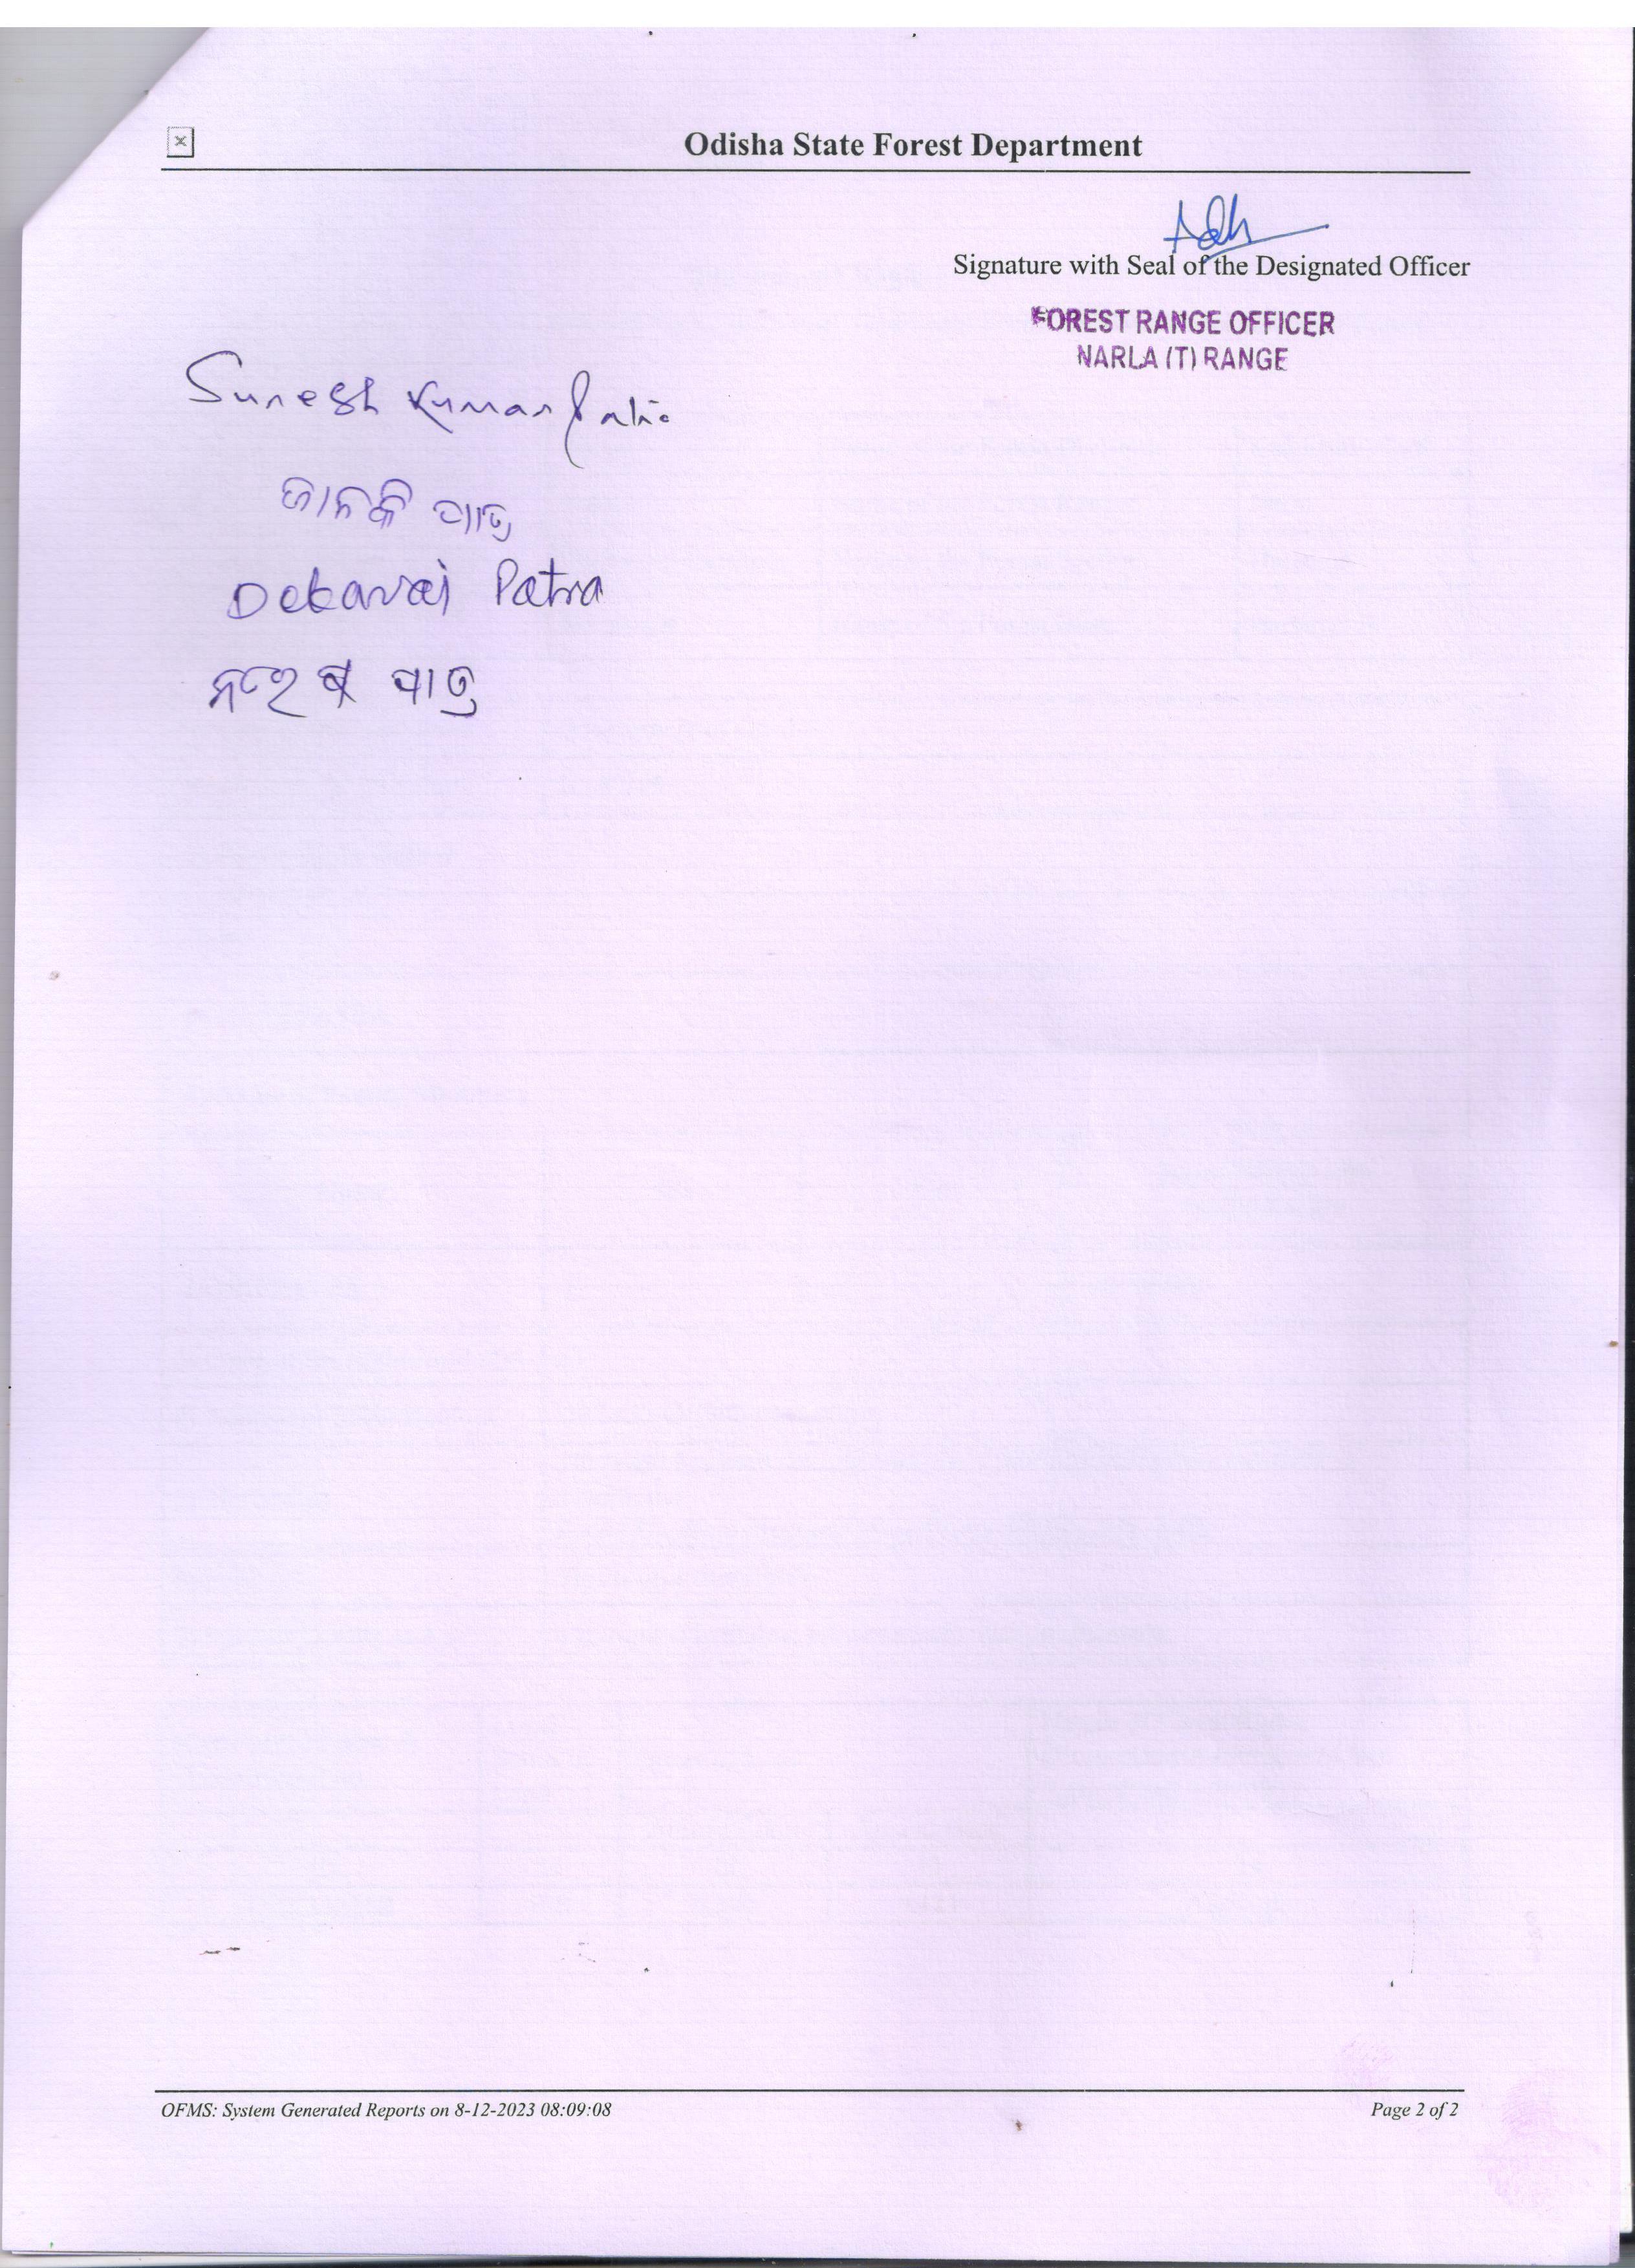 Odisha State Forest Department
Signature with Seal of the Designated Officer
FOREST RANGE OFFICER
NARLA (T) RANGE
Suresh Kumar
ଜାନକି ପାତ୍ର
Patra
ପାତ୍ର
OFMS: System Generated Reports on 8-12-2023 08:09:08
Page 2 of 2